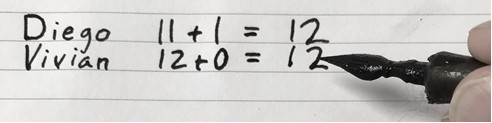 Diego 11 + 1 = 12
Vivian 12 + 0 = 12